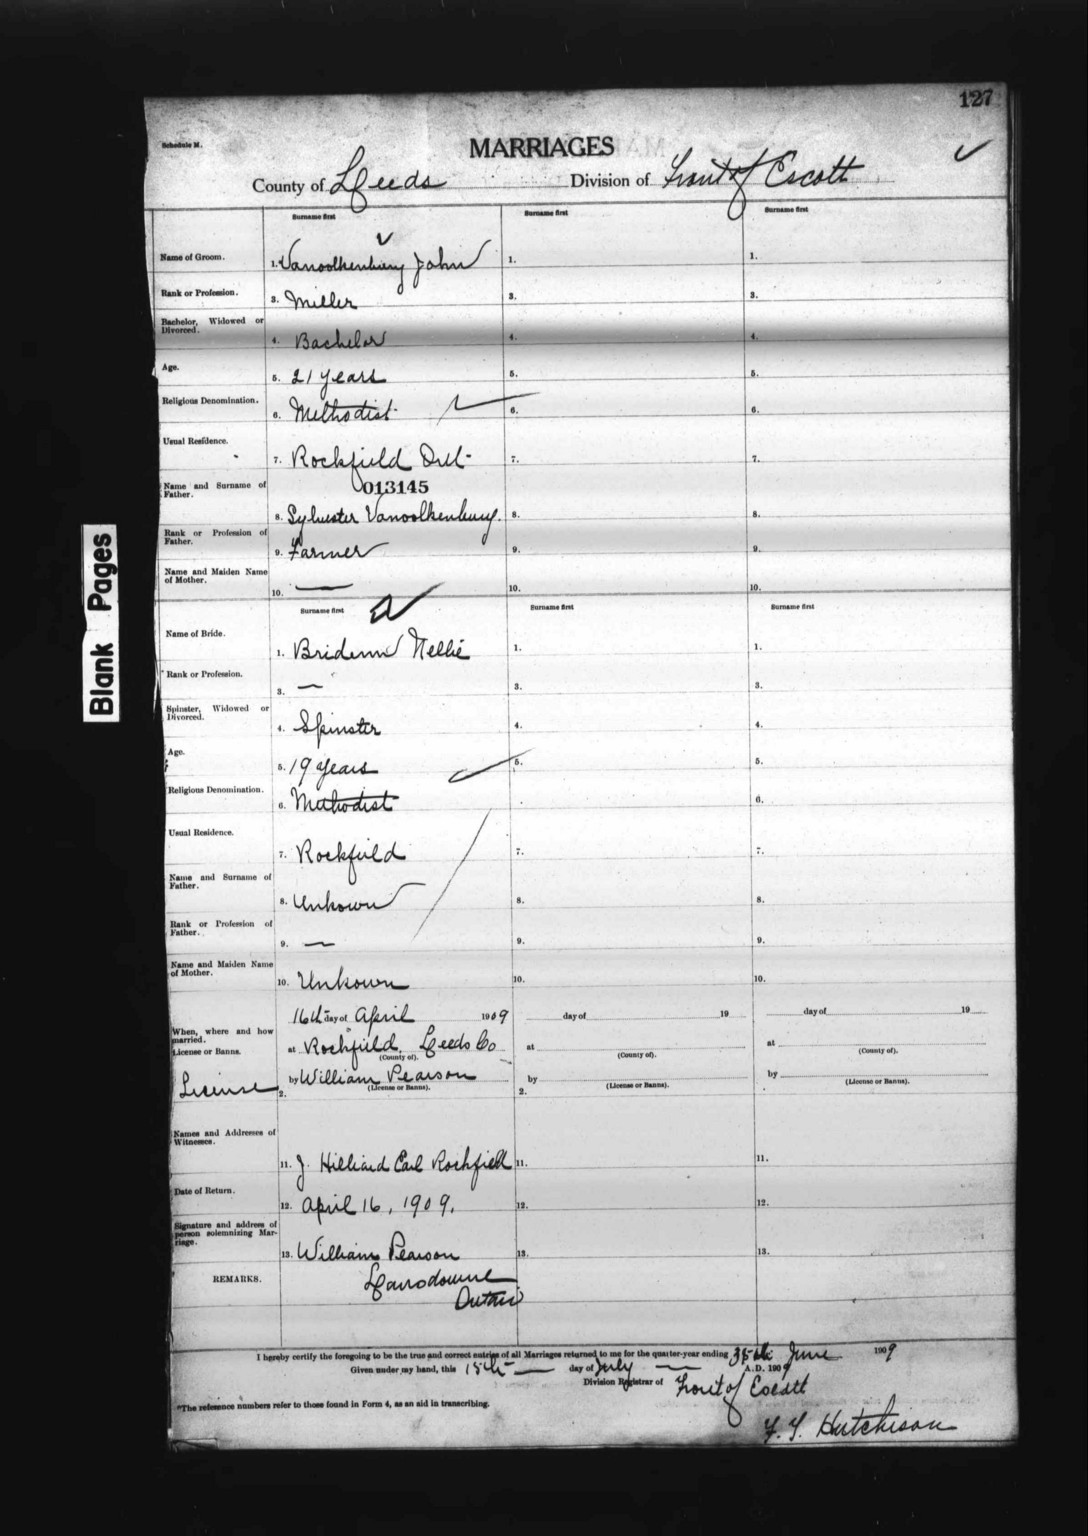 127
Schedule M.
MARRIAGES
County of Leeds Division of Front of Escott
Surname first Surname first Surname first
Name of Groom. 1. Vanvolkenburg John 1. 1.
Rank or Profession. 3. Miller 3. 3.
Bachelor, Widowed or Divorced. 4. Bachelor 4. 4.
Age. 5. 21 years 5. 5.
Religious Denomination. 6. Methodist 6. 6.
Usual Residence. 7. Rockfield Ont 7. 7.
013145
Name and Surname of Father. 8. Sylvester Vanvolkenburg. 8. 8.
Rank or Profession of Father. 9. Farmer 9. 9.
Name and Maiden Name of Mother. 10. — 10. 10.
Surname first Surname first Surname first
Name of Bride. 1. Nellie 1. 1.
Rank or Profession. 3. — 3. 3.
Spinster, Widowed or Divorced. 4. Spinster 4. 4.
Age. 5. 19 years 5. 5.
Religious Denomination. 6. Methodist 6.
Usual Residence. 7. Rockfield 7. 7.
Name and Surname of Father. 8. Unkown 8. 8.
Rank or Profession of Father. 9. — 9. 9.
Name and Maiden Name of Mother. 10. Unkown 10. 10.
16th day of April 1909 day of 19 day of 19
When, where and how married.
License or Banns. at Rockfield, Leeds Co at at
(County of). (County of). (County of).
License 2. by William Pearson 2. by by
(License or Banns). (License or Banns). (License or Banns).
Names and Addresses of Witnesses. 11. J. Hilliard Earl Rockfield 11. 11.
Date of Return. 12. April 16, 1909. 12. 12.
Signature and address of person solemnizing Marriage. 13. William Pearson 13. 13.
REMARKS. Lansdowne
Ontario
I hereby certify the foregoing to be the true and correct entries of all Marriages returned to me for the quarter-year ending June 1909
Given under my hand, this 15th — day of July — A.D. 1909
Division Registrar of Front of Escott
*The reference numbers refer to those found in Form 4, as an aid in transcribing.
Hutchison
Blank Pages